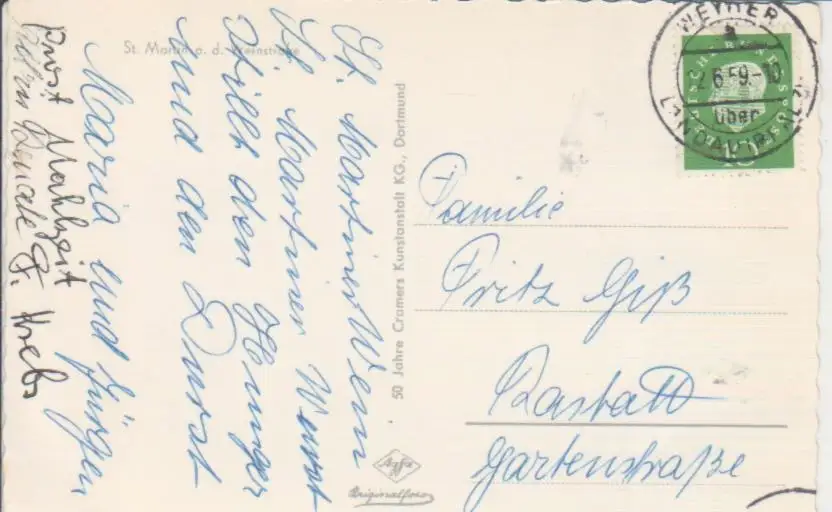 St. Martin a. d. Weinstraße
St. Martiner Wein
St. Martiner Wurst
stillt den Hunger
und den Durst
Maria und Jürgen
Prost Mahlzeit
Krebs
50 Jahre Cramers Kunstanstalt KG., Dortmund
Agfa
Originalfoto
WEYHER
a
2.6.59.-10
über
LANDAU (PFALZ)
DEUTSCHE BUNDESPOST
10
Familie
Fritz Giß
Rastatt
Gartenstraße